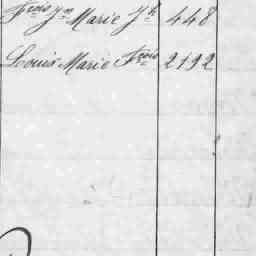 Fçois Jn Marie Jh 448
Louis Marie Fçois 2192